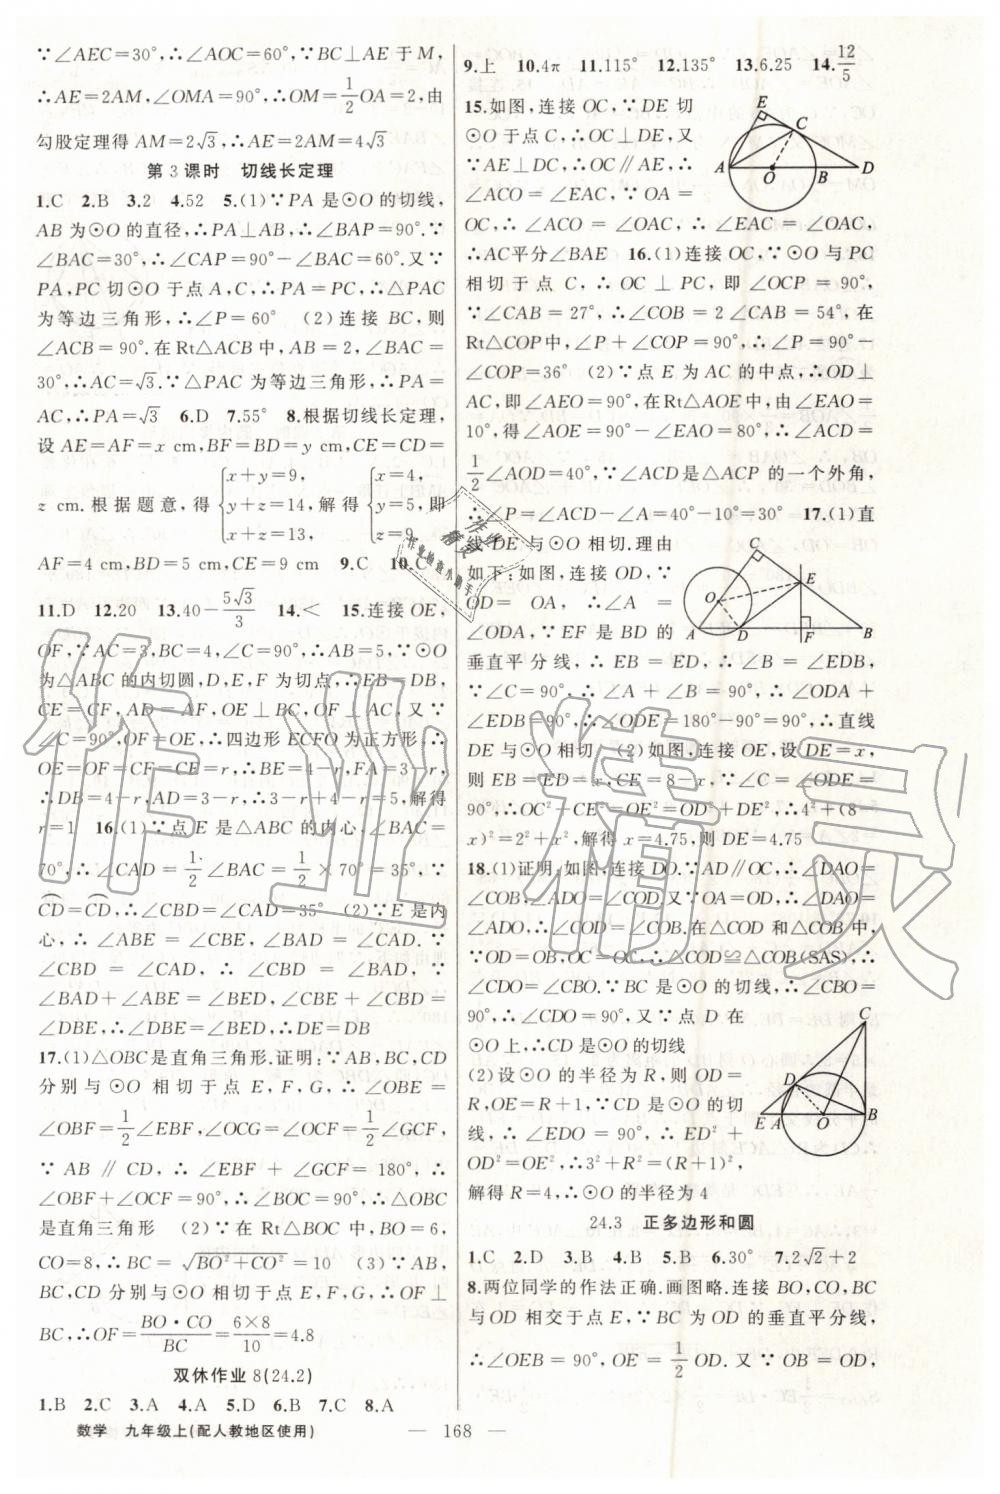 ∵∠AEC=30°,∴∠AOC=60°,∵BC⊥AE于M,
∴AE=2AM,∠OMA=90°,∴OM=1/2OA=2,由
勾股定理得AM=2√3,∴AE=2AM=4√3
第3课时 切线长定理
1.C 2.B 3.2 4.52 5.(1)∵PA是⊙O的切线,
AB为⊙O的直径,∴PA⊥AB,∴∠BAP=90°.∵
∠BAC=30°,∴∠CAP=90°-∠BAC=60°.又∵
PA,PC切⊙O于点A,C,∴PA=PC,∴△PAC
为等边三角形,∴∠P=60° (2)连接BC,则
∠ACB=90°.在Rt△ACB中,AB=2,∠BAC=
30°,∴AC=√3.∵△PAC为等边三角形,∴PA=
AC,∴PA=√3 6.D 7.55° 8.根据切线长定理,
设AE=AF=x cm,BF=BD=y cm,CE=CD=
z cm.根据题意,得{x+y=9, y+z=14, x+z=13,解得{x=4, y=5, z=9.即
AF=4 cm,BD=5 cm,CE=9 cm 9.C 10.C
11.D 12.20 13.40-5√3/3 14.< 15.连接OE,
OF,∵AC=3,BC=4,∠C=90°,∴AB=5.∵⊙O
为△ABC的内切圆,D,E,F为切点,∴EB=DB,
CE=CF,AD=AF,OE⊥BC,OF⊥AC.又∵
∠C=90°,OF=OE,∴四边形ECFO为正方形,∴
OE=OF=CF=CE=r,∴BE=4-r,FA=3-r,
∴DB=4-r,AD=3-r,∴3-r+4-r=5,解得
r=1 16.(1)∵点E是△ABC的内心,∠BAC=
70°,∴∠CAD=1/2∠BAC=1/2×70°=35°,∵
CD=CD,∴∠CBD=∠CAD=35° (2)∵E是内
心,∴∠ABE=∠CBE,∠BAD=∠CAD.∵
∠CBD=∠CAD,∴∠CBD=∠BAD,∵
∠BAD+∠ABE=∠BED,∠CBE+∠CBD=
∠DBE,∴∠DBE=∠BED,∴DE=DB
17.(1)△OBC是直角三角形.证明:∵AB,BC,CD
分别与⊙O相切于点E,F,G,∴∠OBE=
∠OBF=1/2∠EBF,∠OCG=∠OCF=1/2∠GCF,
∵AB∥CD,∴∠EBF+∠GCF=180°,∴
∠OBF+∠OCF=90°,∴∠BOC=90°,∴△OBC
是直角三角形 (2)∵在Rt△BOC中,BO=6,
CO=8,∴BC=√(BO²+CO²)=10 (3)∵AB,
BC,CD分别与⊙O相切于点E,F,G,∴OF⊥
BC,∴OF=BO·CO/BC=6×8/10=4.8
双休作业8(24.2)
1.B 2.C 3.A 4.A 5.D 6.B 7.C 8.A
9.上 10.4π 11.115° 12.135° 13.6.25 14.12/5
15.如图,连接OC,∵DE切
⊙O于点C,∴OC⊥DE,又
∵AE⊥DC,∴OC∥AE,∴
∠ACO=∠EAC,∵OA=
OC,∴∠ACO=∠OAC,∴∠EAC=∠OAC,
∴AC平分∠BAE 16.(1)连接OC,∵⊙O与PC
相切于点C,∴OC⊥PC,即∠OCP=90°,
∵∠CAB=27°,∴∠COB=2∠CAB=54°,在
Rt△COP中,∠P+∠COP=90°,∴∠P=90°-
∠COP=36° (2)∵点E为AC的中点,∴OD⊥
AC,即∠AEO=90°,在Rt△AOE中,由∠EAO=
10°,得∠AOE=90°-∠EAO=80°,∴∠ACD=
1/2∠AOD=40°,∵∠ACD是△ACP的一个外角,
∴∠P=∠ACD-∠A=40°-10°=30° 17.(1)直
线DE与⊙O相切.理由
如下:如图,连接OD,∵
OD=OA,∴∠A=
∠ODA,∵EF是BD的
垂直平分线,∴EB=ED,∴∠B=∠EDB,
∵∠C=90°,∴∠A+∠B=90°,∴∠ODA+
∠EDB=90°,∴∠ODE=180°-90°=90°,∴直线
DE与⊙O相切 (2)如图,连接OE,设DE=x,
则EB=ED=x,CE=8-x,∵∠C=∠ODE=
90°,∴OC²+CE²=OE²=OD²+DE²,∴4²+(8-
x)²=2²+x²,解得x=4.75,则DE=4.75
18.(1)证明:如图,连接DO.∵AD∥OC,∴∠DAO=
∠COB,∠ADO=∠COD.又∵OA=OD,∴∠DAO=
∠ADO,∴∠COD=∠COB.在△COD和△COB中,
∵OD=OB,OC=OC,∴△COD≌△COB(SAS),∴
∠CDO=∠CBO.∵BC是⊙O的切线,∴∠CBO=
90°,∴∠CDO=90°,又∵点D在
⊙O上,∴CD是⊙O的切线
(2)设⊙O的半径为R,则OD=
R,OE=R+1,∵CD是⊙O的切
线,∴∠EDO=90°,∴ED²+
OD²=OE²,∴3²+R²=(R+1)²,
解得R=4,∴⊙O的半径为4
24.3 正多边形和圆
1.C 2.D 3.B 4.B 5.B 6.30° 7.2√2+2
8.两位同学的作法正确.画图略.连接BO,CO,BC
与OD相交于点E,∵BC是OD的垂直平分线,
∴∠OEB=90°,OE=1/2OD.又∵OB=OD,
数学 九年级上(配人教地区使用) — 168 —